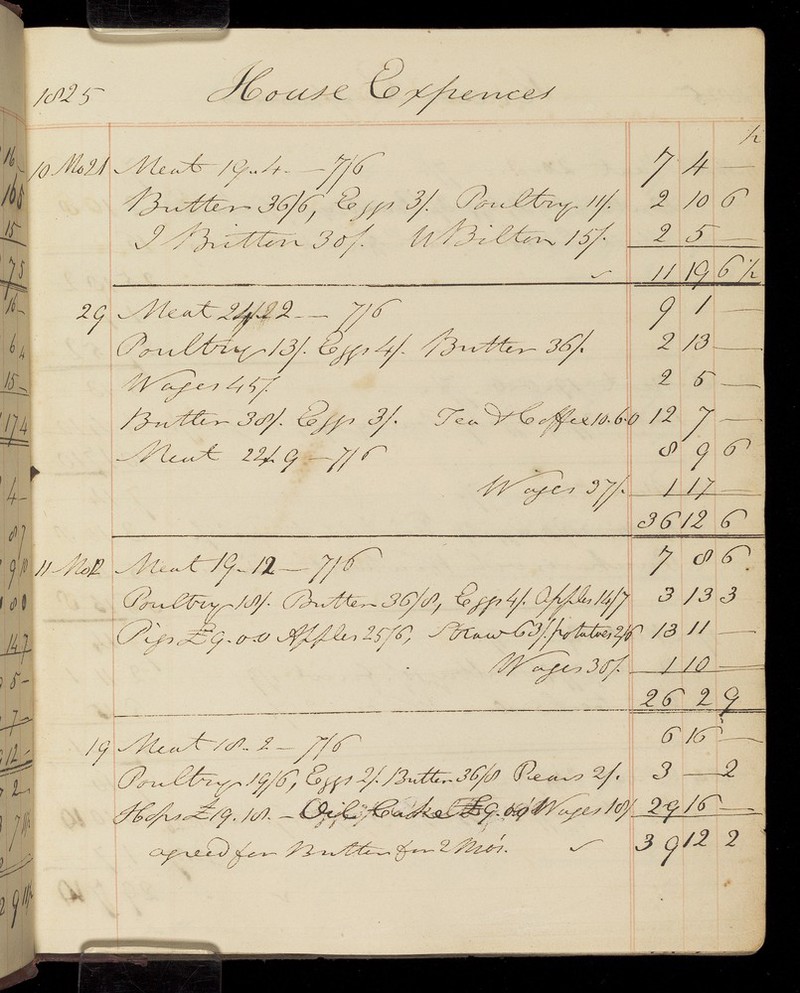 1825 House Expences
½
10 Mo 21 Meat 19..4 — 7/6 7 4 —
Butter 36/6, Eggs 3/. Poultry 11/. 2 10 6
J Britton 30/. W Bilton 15/. 2 5 —
11 19 6½
29 Meat 24/.22 — 7/6 9 1 —
Poultry 13/. Eggs 4/. Butter 36/. 2 13 —
Wages 45/. 2 5 —
Butter 38/. Eggs 3/. Tea & Coffee 10.6.0 12 7 —
Meat 22/.9 — 7/6 8 9 6
Wages 37/. 1 17 —
36 12 6
11 Mo 12 Meat 19..12 — 7/6 7 8 6
Poultry 18/. Butter 36/8, Eggs 4/. Apples 14/7 3 13 3
Pigs £9.0.0 Apples 25/6, Straw 63/. potatoes 2/6 13 11 —
Wages 30/. 1 10 —
26 2 9
19 Meat 18..2 — 7/6 6 16 —
Poultry 19/6, Eggs 2/. Butter 36/8 Pears 2/. 3 — 2
Hops £19.18. — Oil Wages 18/ 29 16 —
agreed for Butter for 2 Mo's. 39 12 2